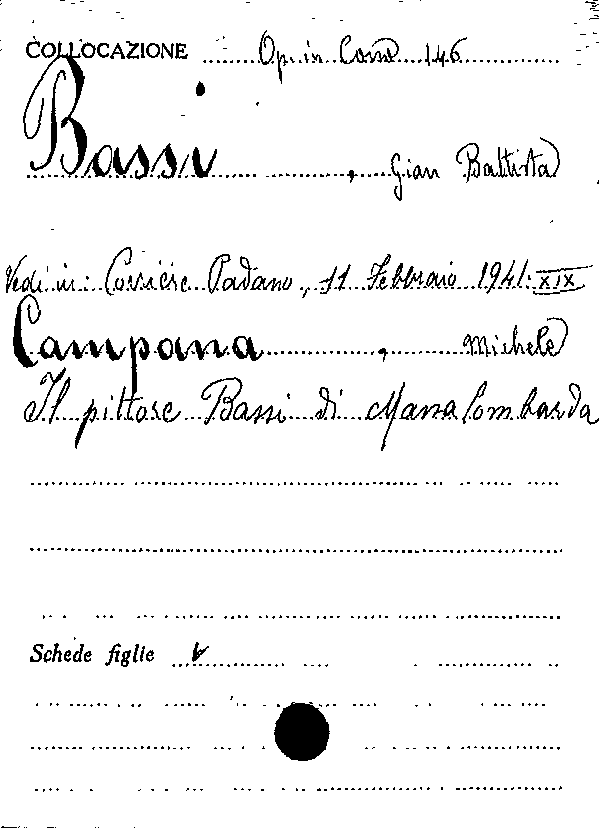 COLLOCAZIONE Op. in Cons 146
Bassi, Gian Battista
Vedi in: Corriere Padano, 11 Febbraio 1941. XIX
Campana, Michele
Il pittore Bassi di Massalombarda
Schede figlie V